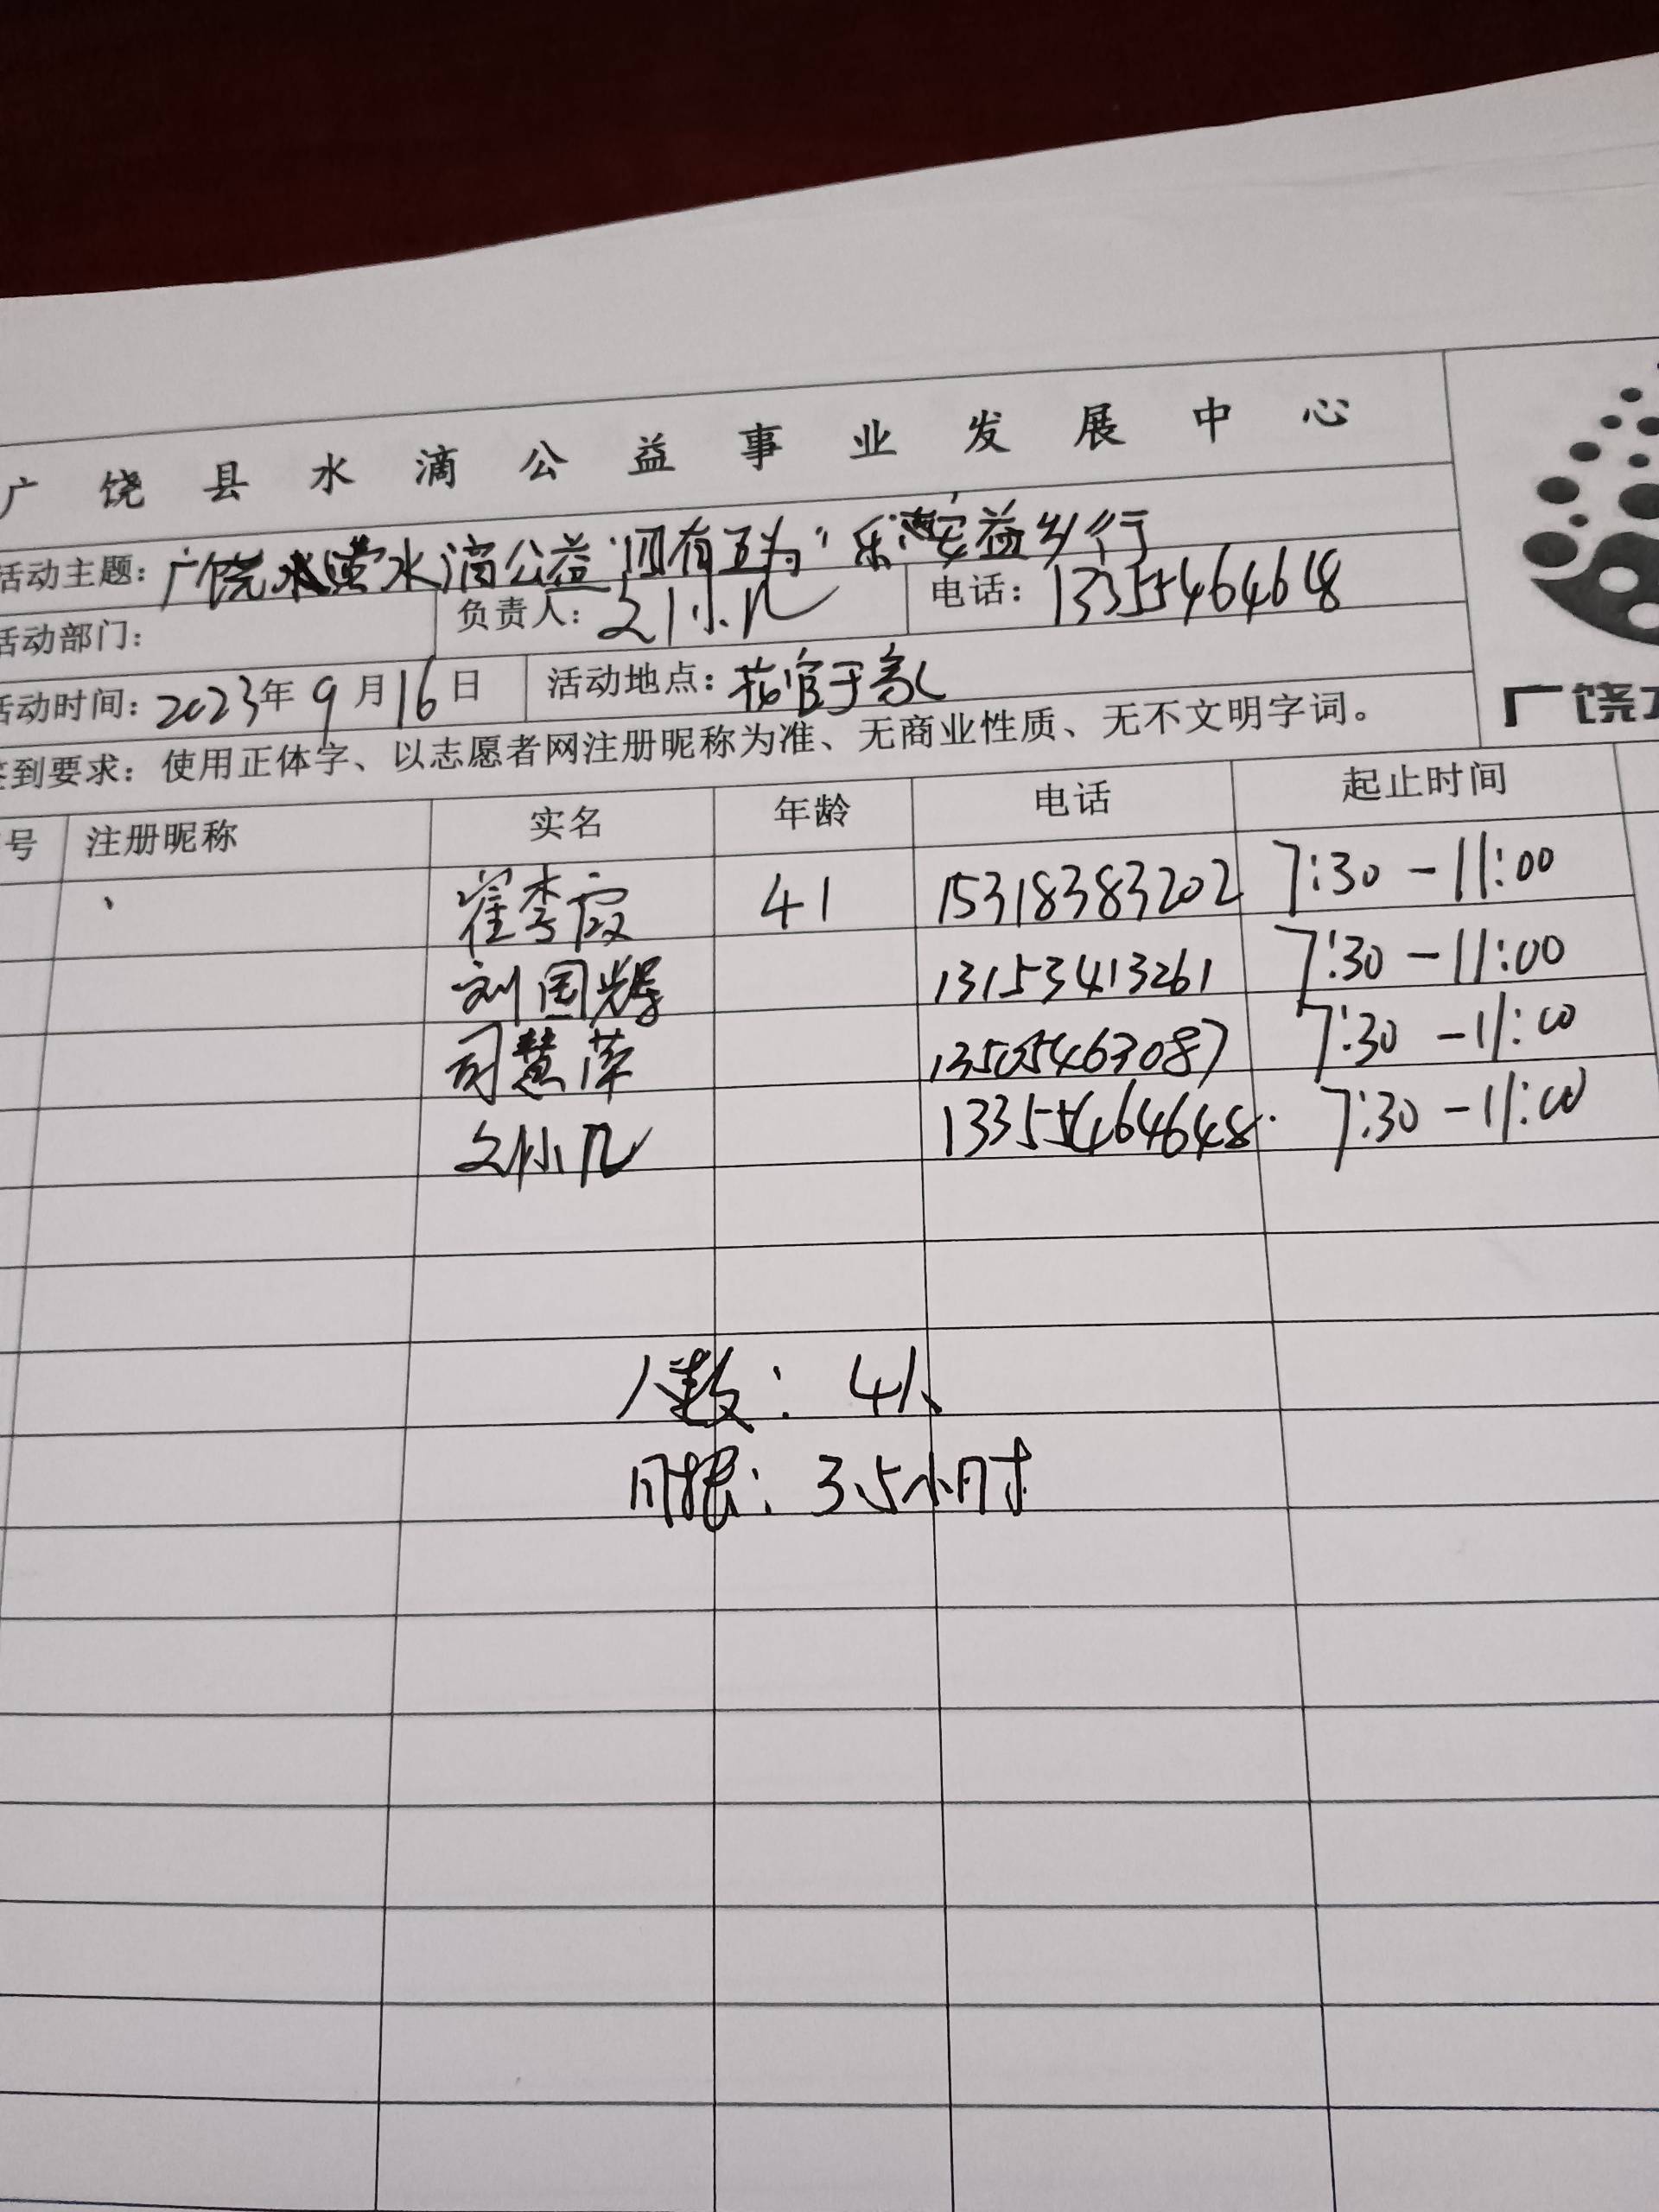 广饶县水滴公益事业发展中心
活动主题：广饶水滴公益"四有五为"乐安益乡行
活动部门： 负责人：刘小几 电话：13355464648
活动时间：2023年9月16日 活动地点：花官于
签到要求：使用正体字、以志愿者网注册昵称为准、无商业性质、无不文明字词。
号 注册昵称 实名 年龄 电话 起止时间
崔李霞 41 15318383202 7:30-11:00
刘国辉 13153413261 7:30-11:00
司慧萍 13505463087 7:30-11:00
刘小几 13355464648 7:30-11:00
人数：4人
时长：3.5小时
广饶